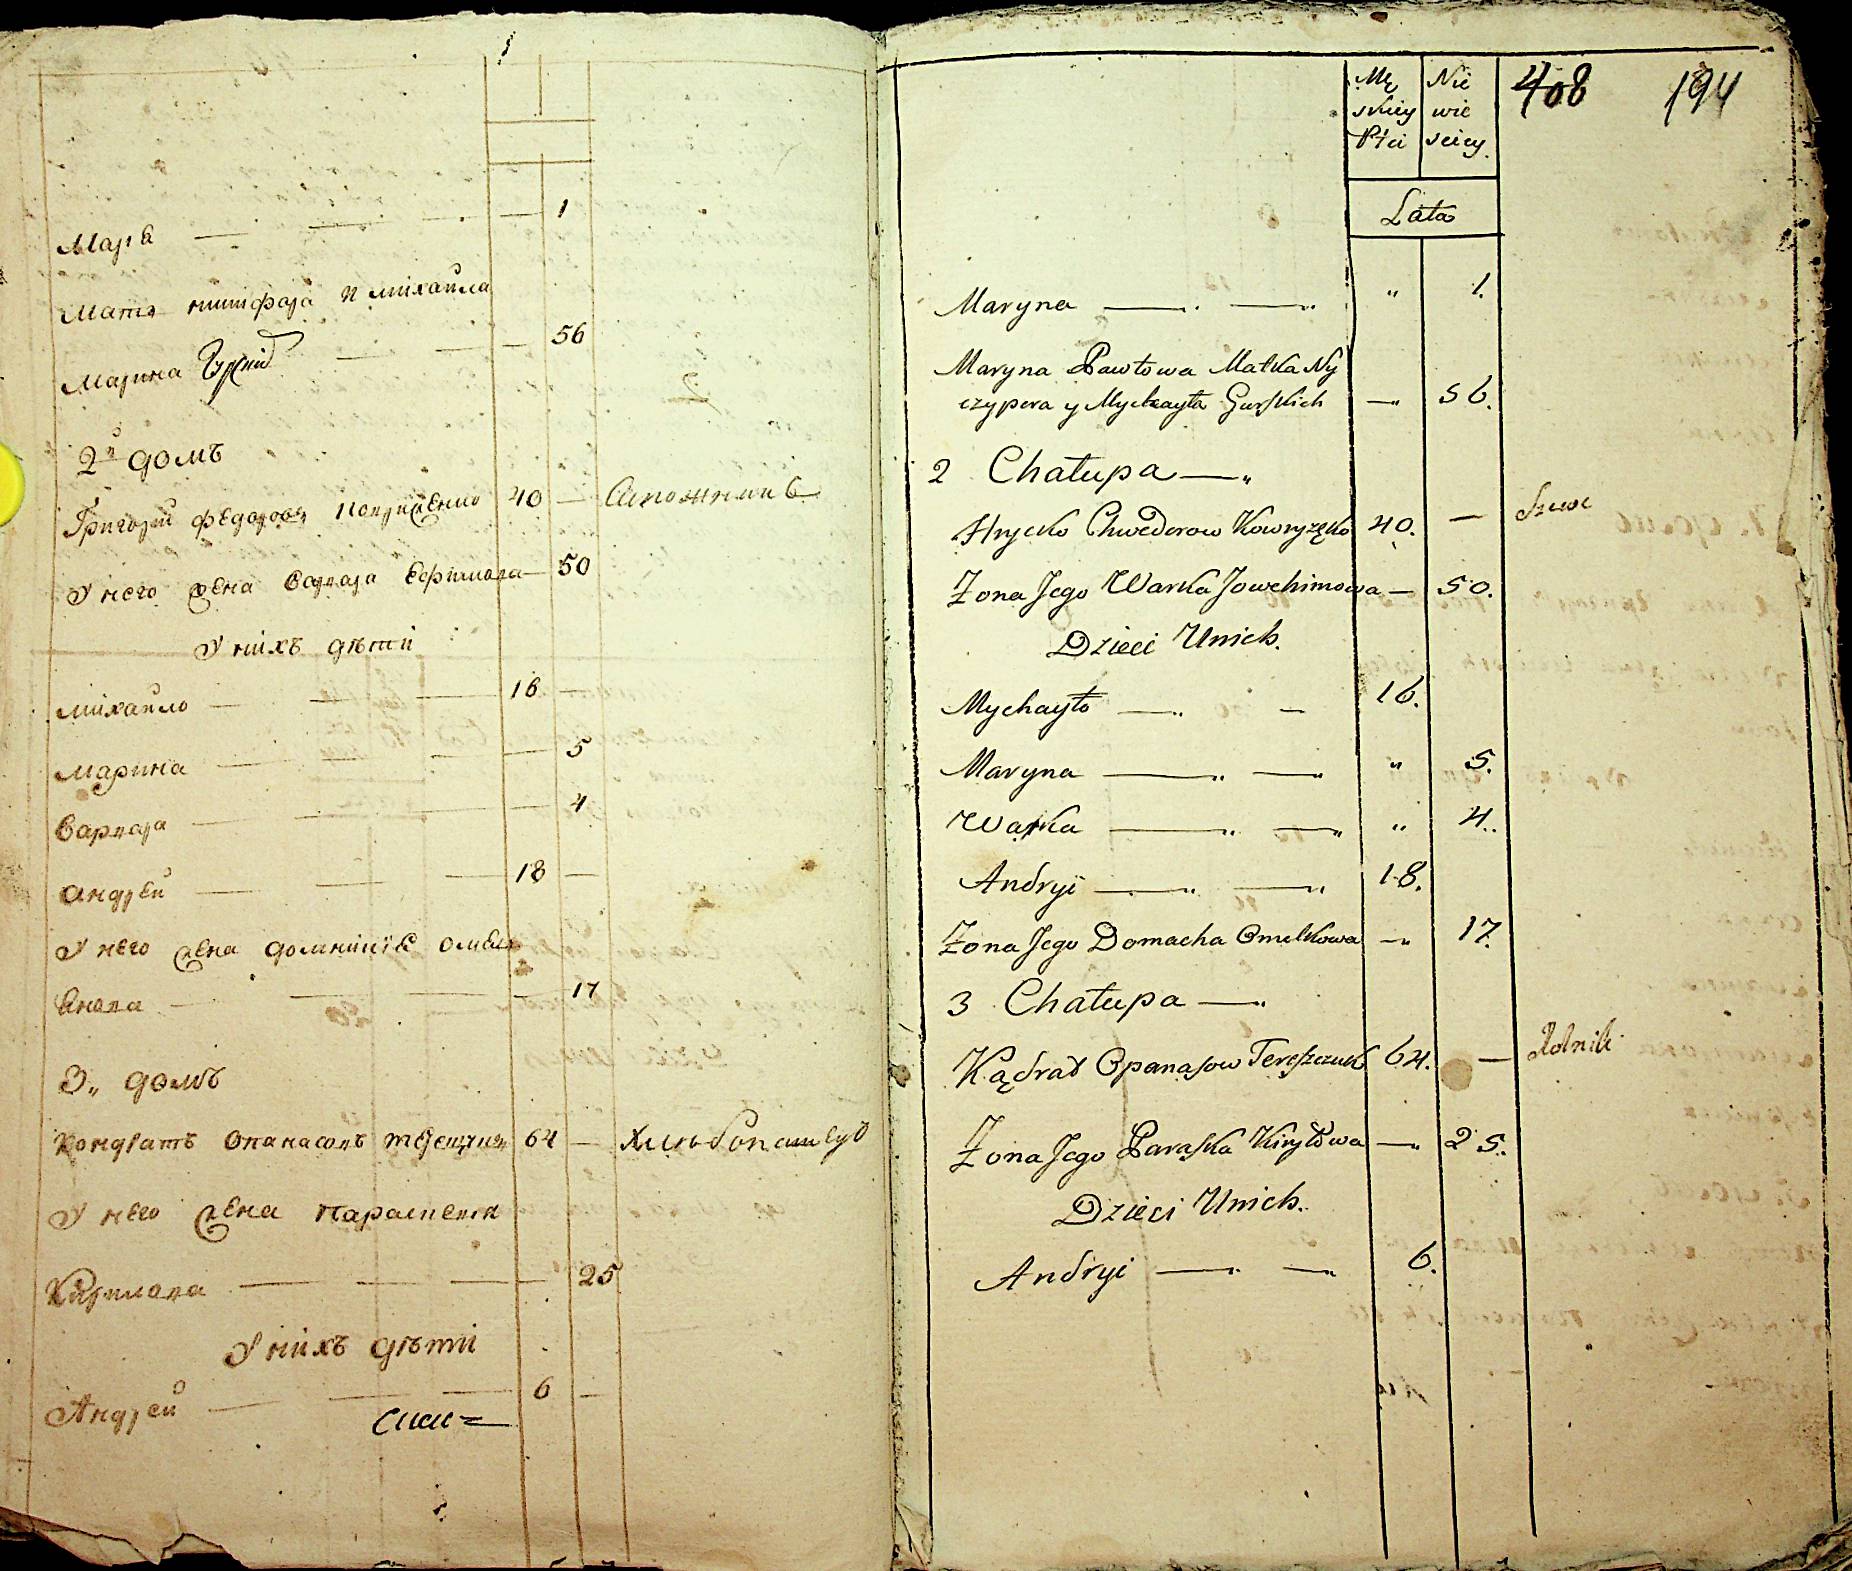 1
Марѣ — — — — 1
Мать и михайла
Марина — — — 56
2й домъ
Григорій Федоровъ 40 —
У него жена Варвара Ефимова — 50
У нихъ дѣти
михайло — — — 16 —
марина — — — 5
Варвара — — — 4
андрей — — — 18 —
У него жена
— — — — 17
3„ домъ
Кондратъ Опанасовъ 64 — Хлѣбопашецъ
У него жена Парасковя
Кирилова — — — — 25
У нихъ дѣти
Андрей — — — 6 —
408 194
Mę Nie
skiey wie
Płci sciey
Lata
Maryna — — " 1.
Maryna Pawłowa Matka Ny
czypera y Mychayła Gurskich — 56.
2 Chałupa —
Hrycko Chwedorow Kowryżęko 40. — Szewc
Żona Jego Warka Jowchimowa — 50.
Dzieci Unich.
Mychayło — — 16.
Maryna — — " 5.
Warka — — " 4.
Andryi — — 18.
Żona Jego Domacha Omelkowa — 17.
3 Chałupa —
Kądrat Opanasow Tereszczuk 64. — Rolnik
Żona Jego Paraska Kiryłowa — 25.
Dzieci Unich.
Andryi — — 6.